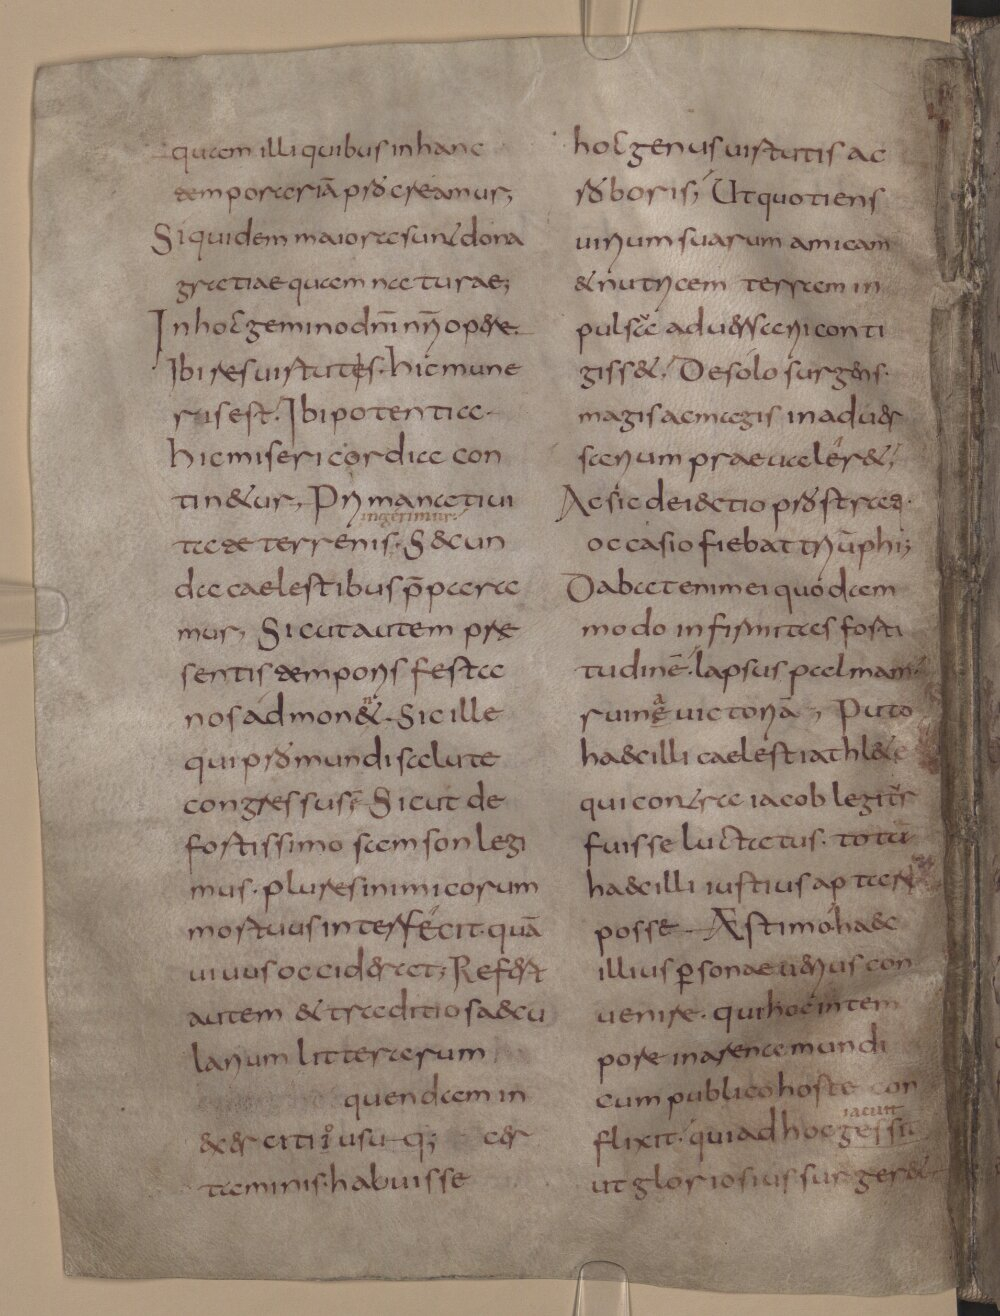 quam illi quibus in hanc
temporariā procreamur;
Siquidem maiora sunt dona
gratiae quam naturae;
In hoc gemino dn̄i nr̄i opere
Ibi res uirtutis. hic mune
ris est. Ibi potentia.
hic misericordia con
tinetur, Pri ma natiui
ingerimur.
tate terrenis. Secun
da caelestibus p̄para
mur, Sicut autem pre
sentis temporis festa
nos admonent. Sic ille
qui pro mundi salute
congressus ē. Sicut de
fortissimo samson legi
mus. plures inimicorum
mortuus interfecit. quā
uiuus occideret; Refert
autem & traditio saecu
larium litterarum
quendam in
exercitii usu q;
taminis habuisse
hoc genus uirtutis ac
roboris; Ut quotiens
uirium suarum amicam
& nutricem terram in
pulsa aduersarii conti
gisset, De solo surgens.
magis ac magis in aduer
sarium praeualeret,
Ac sic deiectio prostrati.
occasio fiebat triūphi;
Dabat enim ei quodam
modo infirmitas forti
tudinē. lapsus palmam.
ruina uictoriā, Puto
haec illi caelesti athletae
qui contra iacob legitur
fuisse luctatus. totū
haec illi iustius aptari
posse Æstimo haec
illius personae uerius con
uenire. qui hoc in tem
pore in arena mundi
cum publico hoste con
iacuit
flixit. qui ad hoc gessit
ut gloriosius surgeret